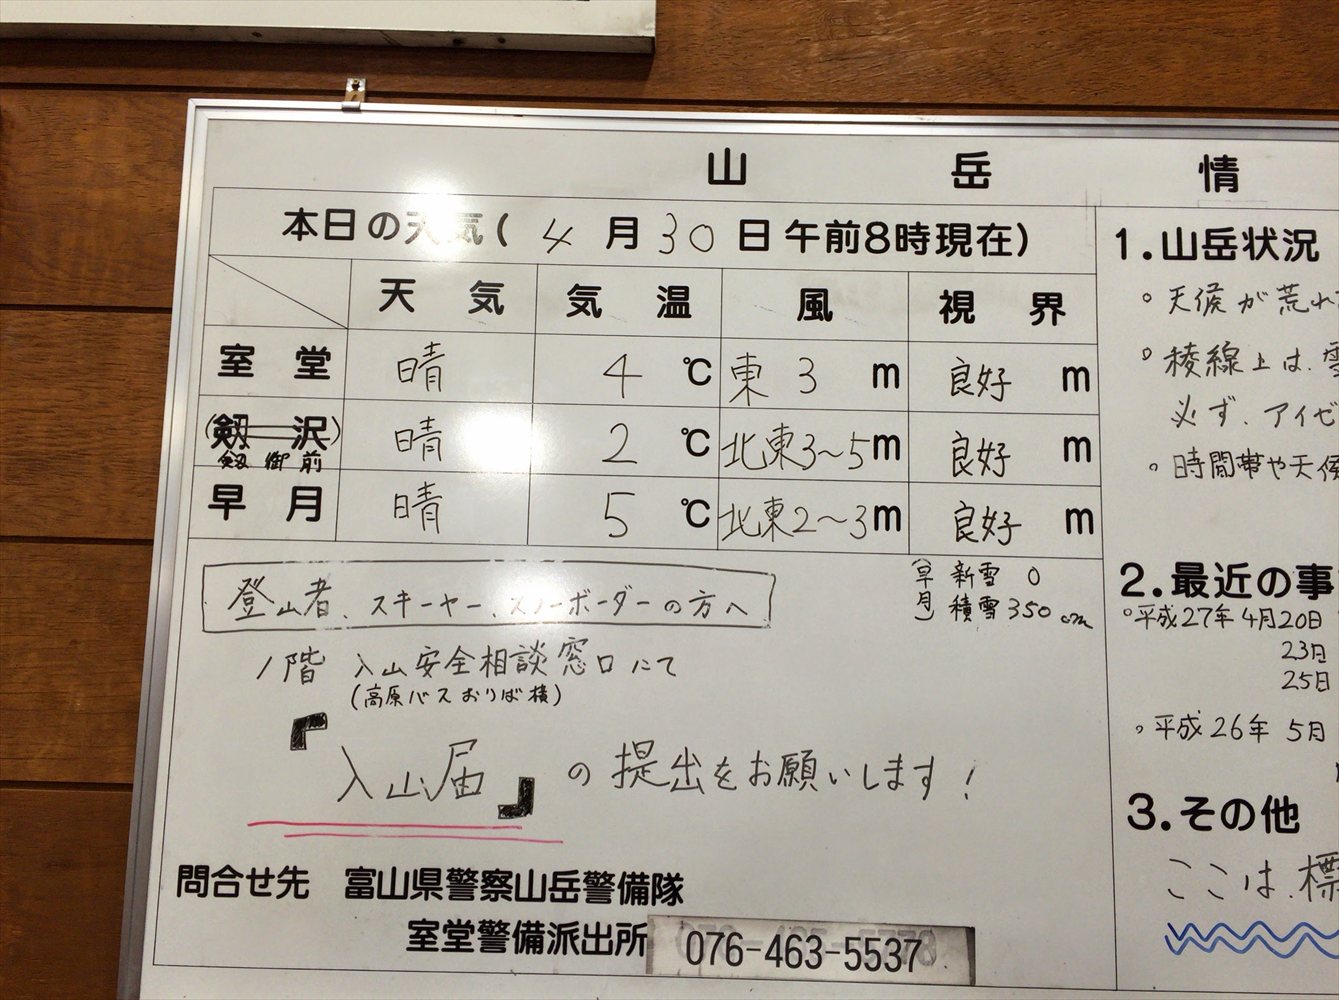 山岳情
本日の天気(4月30日午前8時現在)
天気 気温 風 視界
室堂 晴 4℃ 東3m 良好m
(剱沢) 晴 2℃ 北東3〜5m 良好m
剱御前
早月 晴 5℃ 北東2〜3m 良好m
(早月) 新雪 0
積雪350cm
登山者、スキーヤー、スノーボーダーの方へ
1階 入山安全相談窓口にて
(高原バスおりば横)
『入山届』の提出をお願いします!
問合せ先 富山県警察山岳警備隊
室堂警備派出所 076-463-5537
1.山岳状況
○天候が荒れ
○稜線上は、雪
必ず、アイゼ
○時間帯や天候
2.最近の事
○平成27年4月20日
23日
25日
○平成26年5月
3.その他
ここは、標